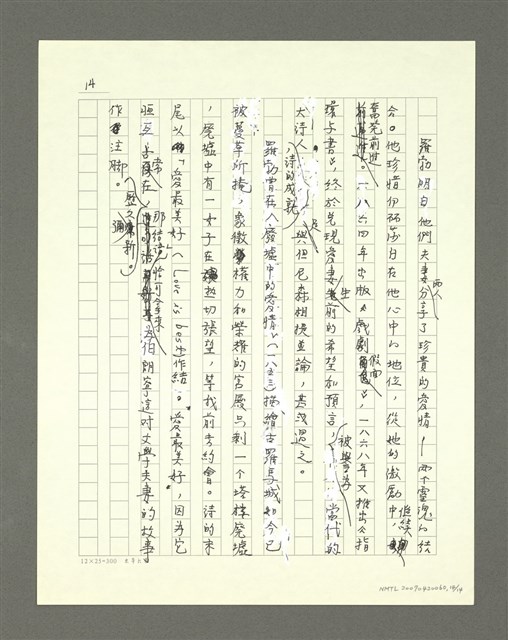 14
羅勃明白他們夫妻兩人分享了珍貴的愛情—兩個靈魂的結
合。他珍惜伊莉莎白在他心中的地位，從她的激勵中，繼續
奮發前進。一八六四年出版《戲劇假面》，一八六八年又推出《指
環與書》，終於兌現愛妻生前的希望和預言，被譽為當代的
大詩人，詩的成就足與但尼森相提並論，甚或過之。
羅勃曾在《廢墟中的愛情》（一八五三）描繪古羅馬城如今已
被蔓草所掩，象徵權力和榮耀的宮殿只剩一個塔樓廢墟
，廢墟中有一女子在熱切張望，等我前去約會。詩的末
尾以「愛最美好」（Love is best）作結。「愛最美好，因為它
恆常存在」，那結語恰可拿來為伯朗寧這對文學夫妻的故事
作注腳。（歷久彌新。）
12×25=300
NMTL 20070420060, 14/14